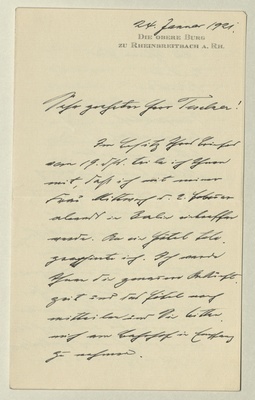 24. Januar 1921.
DIE OBERE BURG
ZU RHEINBREITBACH A. RH.
Sehr geehrter Herr Teschner!
Im Besitz Ihres Briefes
vom 19. ds. teile ich Ihnen
mit, daß ich mit meiner
Frau Mittwoch d. 2. Februar
abends in Berlin eintreffen
werde. An ein Hotel tele-
graphierte ich. Ich werde
Ihnen die genauere Ankunfts-
zeit und das Hotel noch
mitteilen und Sie bitten
mich am Bahnhof in Empfang
zu nehmen.